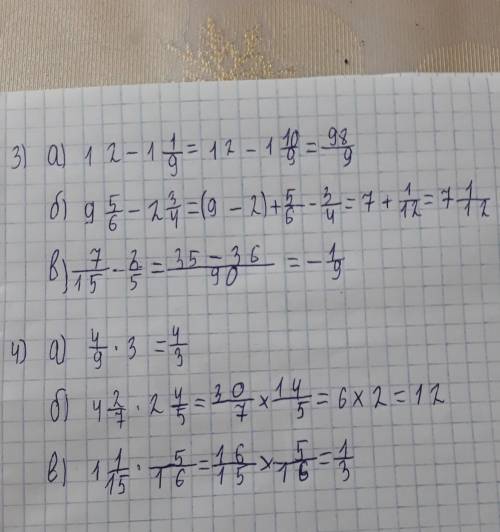 3) а) 12 - 1 1/9 = 12 - 1 10/9 = 98/9
б) 9 5/6 - 2 3/4 = (9 - 2) + 5/6 - 3/4 = 7 + 1/12 = 7 1/12
в) 7/15 - 2/5 = 35 - 36/90 = - 1/9
4) а) 4/9 · 3 = 4/3
б) 4 2/7 · 2 4/5 = 30/7 × 14/5 = 6 × 2 = 12
в) 1 1/15 · 5/16 = 16/15 × 5/16 = 1/3